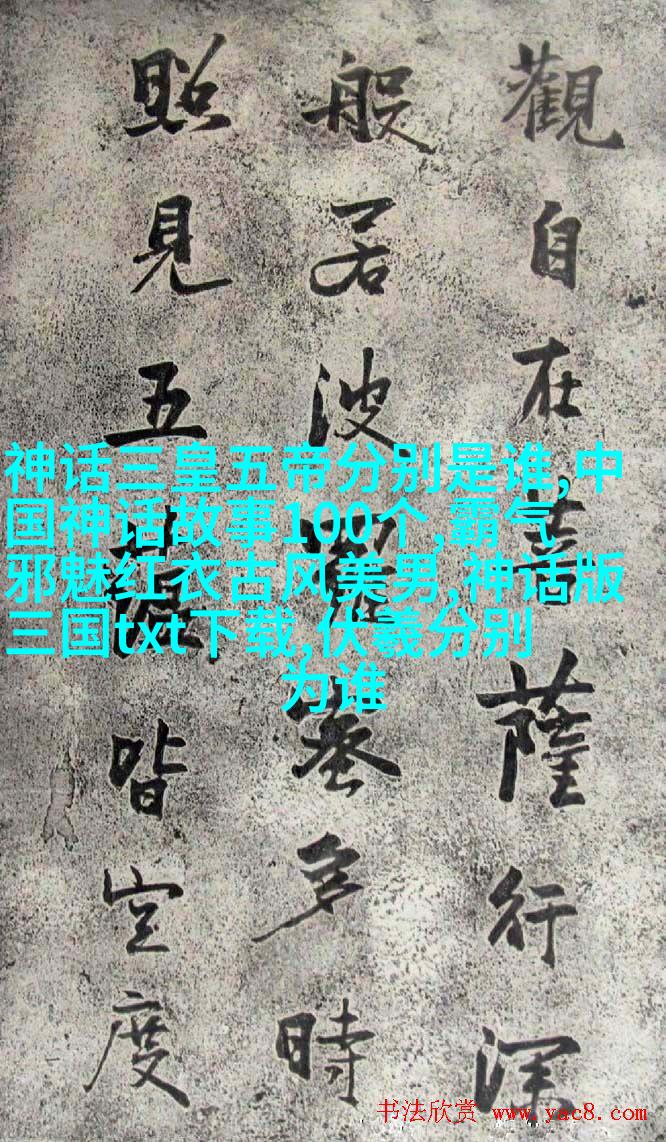 觀自在菩薩行深
般若波羅蜜多時
照見五蘊皆空度
神话三皇五帝分别是谁,中
国神话故事100个,霸气
邪魅红衣古风美男,神话版
三国txt下载,伏羲分别
为谁
书法欣赏 www.yac8.com